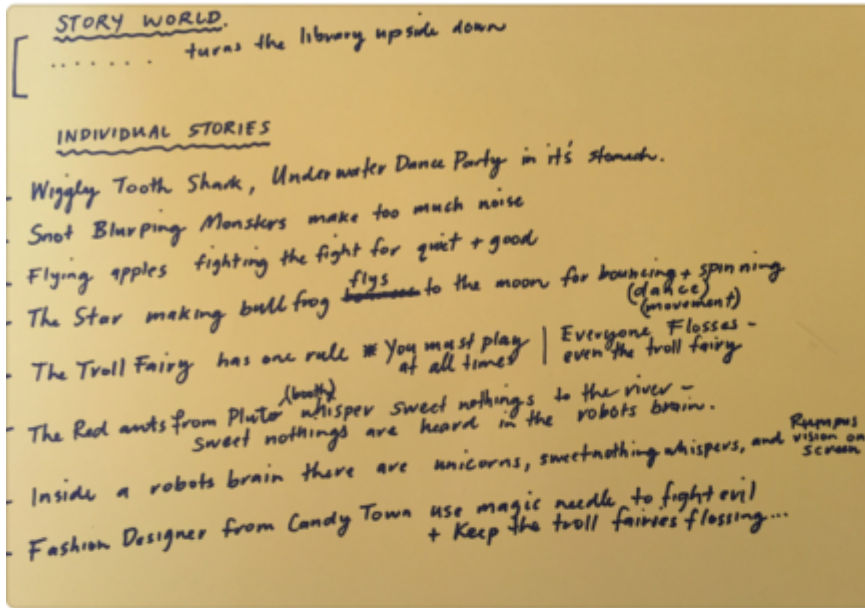 STORY WORLD.
....... turns the library upside down
INDIVIDUAL STORIES
- Wiggly Tooth Shark, Underwater Dance Party in it's stomach.
- Snot Blurping Monsters make too much noise
- Flying apples fighting the fight for quiet + good
flys
- The Star making bullfrog to the moon for bouncing + spinning
(dance)
(movement)
- The Troll Fairy has one rule * You must play | Everyone Flosses -
at all times | even the troll fairy
(booth)
- The Red ants from Pluto whisper sweet nothings to the river -
sweet nothings are heard in the robots brain.
- Inside a robots brain there are unicorns, sweetnothing whispers, and Rumpus
vision on
screen
- Fashion Designer from Candy Town use magic needle to fight evil
+ Keep the troll fairies flossing...